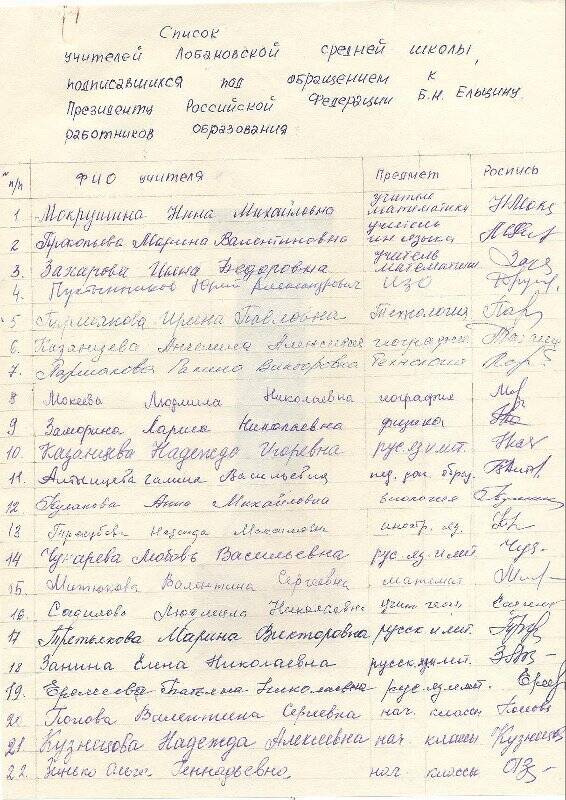 Список
учителей Лобановской средней школы,
подписавшихся под обращением к
Президенту Российской Федерации Б.Н. Ельцину
работников образования
п/п ФИО учителя Предмет Роспись
1 Мокрушина Нина Михайловна учитель математики
2 Прокопьева Марина Валентиновна учитель ин. языка
3. Захарова Инна Федоровна учитель математики
4. Пустынников Юрий Александрович ИЗО
5 Пермякова Ирина Павловна Технология
6. Казанцева Ангелина Алексеевна география
7. Ларина Викторовна Технология
8 Мокеева Людмила Николаевна география
9 Заморина Лариса Николаевна физика
10. Казанцева Надежда Игоревна рус.яз и лит.
11. Галина Васильевна пед. доп. образ.
12 Анна Михайловна биология
13 Надежда Максимовна иностр. яз.
14 Чухарева Любовь Васильевна рус. яз. и лит
15. Митюкова Валентина Сергеевна математ
16. Людмила Николаевна
17 Третьякова Марина Викторовна русск и лит.
18 Занина Елена Николаевна русск.яз и лит.
19. Еремеева Татьяна Николаевна рус. яз и лит.
20. Попова Валентина Сергеевна нач. классы Попова
21. Кузнецова Надежда Алексеевна нач. классы Кузнецова
22. Зинько Ольга Геннадьевна нач. классы